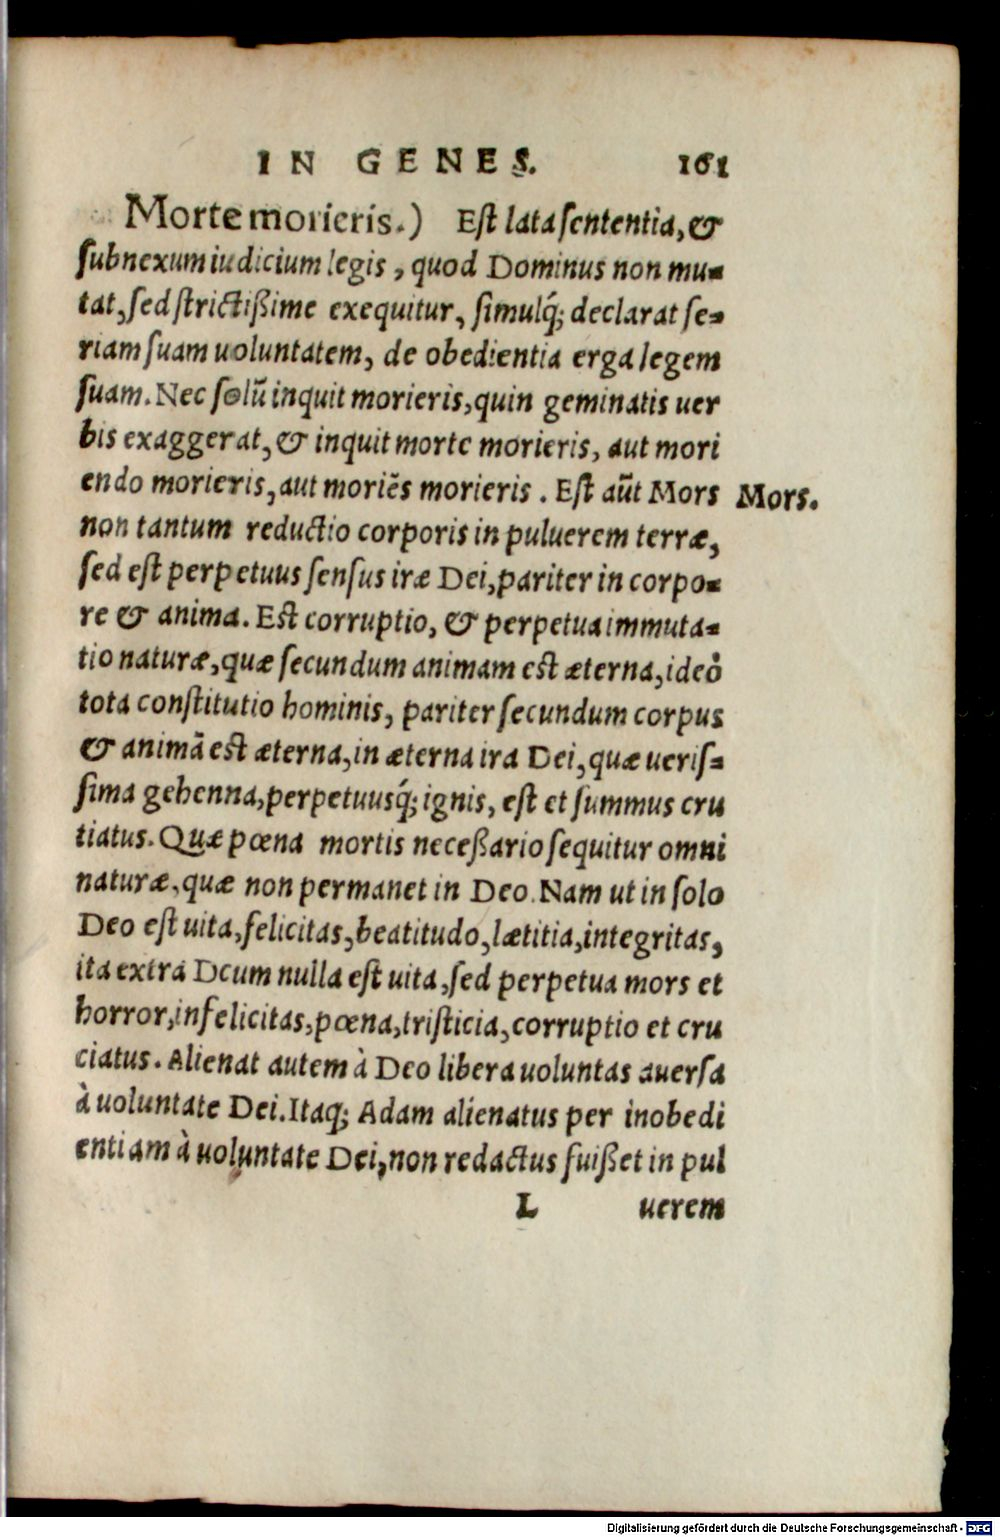 IN GENES. 161
Morte morieris.) Est lata sententia, &
subnexum iudicium legis, quod Dominus non mu-
tat, sed strictißime exequitur, simulq́; declarat se-
riam suam uoluntatem, de obedientia erga legem
suam. Nec solũ inquit morieris, quin geminatis uer
bis exaggerat, & inquit morte morieris, aut mori
endo morieris, aut moriẽs morieris. Est aũt Mors
Mors.
non tantum reductio corporis in puluerem terræ,
sed est perpetuus sensus iræ Dei, pariter in corpo-
re & anima. Est corruptio, & perpetua immuta-
tio naturæ, quæ secundum animam est æterna, ideo
tota constitutio hominis, pariter secundum corpus
& animã est æterna, in æterna ira Dei, quæ ueris-
sima gehenna, perpetuusq́; ignis, est et summus cru
tiatus. Quæ pœna mortis neceßario sequitur omni
naturæ, quæ non permanet in Deo. Nam ut in solo
Deo est uita, felicitas, beatitudo, lætitia, integritas,
ita extra Deum nulla est uita, sed perpetua mors et
horror, infelicitas, pœna, tristicia, corruptio et cru
ciatus. Alienat autem à Deo libera uoluntas auersa
à uoluntate Dei. Itaq; Adam alienatus per inobedi
entiam à uoluntate Dei, non redactus fuißet in pul
L uerem
Digitalisierung gefördert durch die Deutsche Forschungsgemeinschaft - DFG